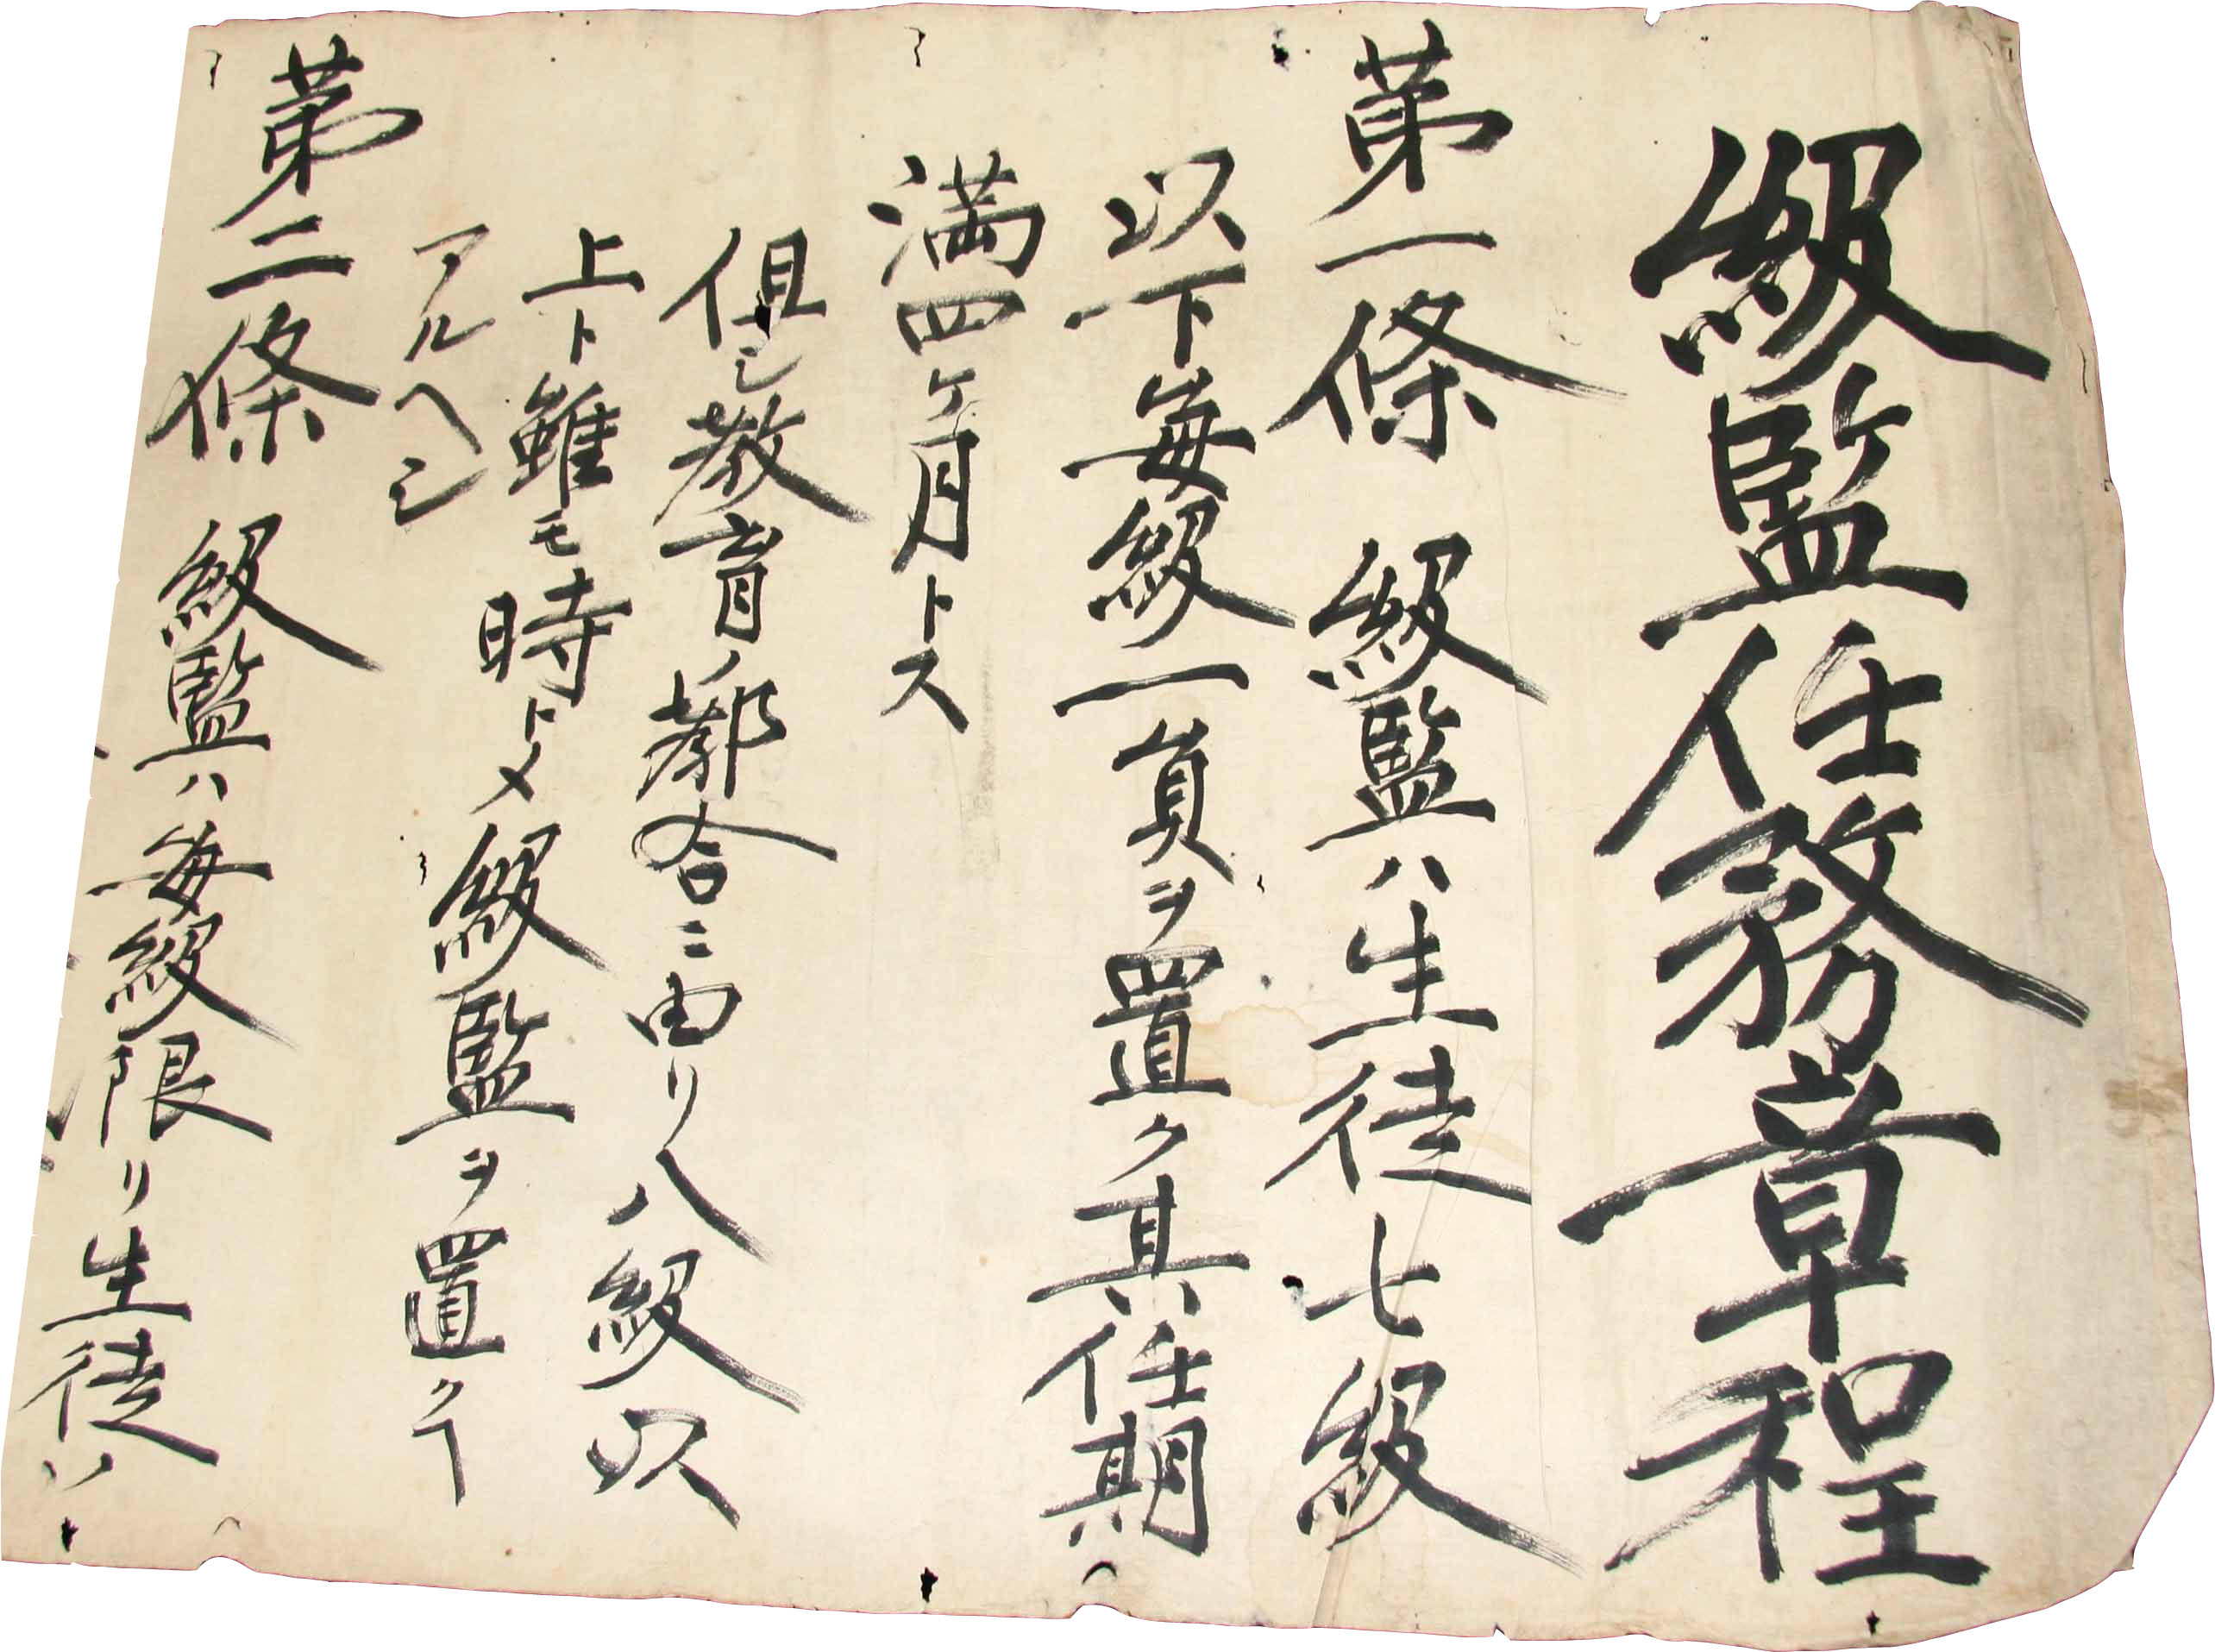 級監任務章程
第一條 級監ハ生徒七級
以下毎級一員ヲ置ク其任期
満四ケ月トス
但シ教育ノ都合ニ由リ八級以
上ト雖モ時トメ級監ヲ置クヿ
アルヘシ
第二條 級監ハ毎級限リ生徒ハ